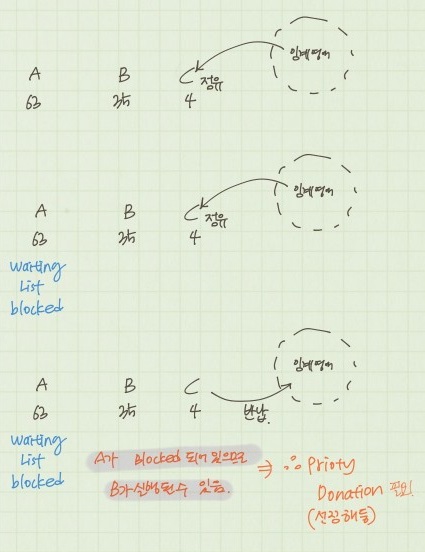 임계영역
A B C 점유
63 35 4
임계영역
A B C 점유
63 35 4
waiting
list
blocked
임계영역
A B C
63 35 4 반납.
waiting
list
blocked
A가 blocked 되어 있으므로
B가 실행될 수 있음.
⇒ ∴ Prioty
Donation 필요!
(선점해둠)